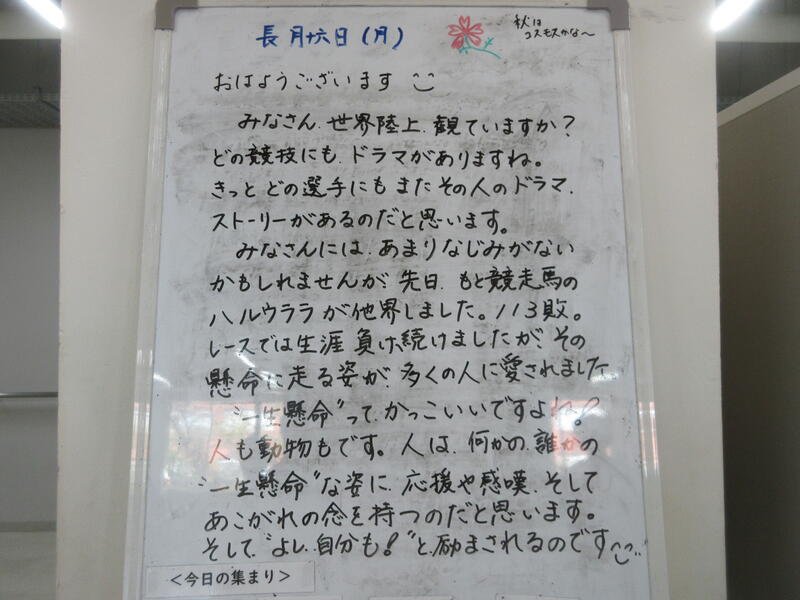 長月十六日(月)
秋は
コスモスかな〜
おはようございます
みなさん、世界陸上、観ていますか?
どの競技にも、ドラマがありますね。
きっと どの選手にもまたその人のドラマ、
ストーリーがあるのだと思います。
みなさんには、あまりなじみがない
かもしれませんが、先日、もと競走馬の
ハルウララが他界しました。113敗。
レースでは生涯負け続けましたが、その
懸命に走る姿が、多くの人に愛されました。
"一生懸命"って、かっこいいですよね!
人も動物もです。人は、何かの、誰かの
"一生懸命"な姿に、応援や感嘆、そして
あこがれの念を持つのだと思います。
そして、"よし、自分も!"と、励まされるのです
<今日の集まり>